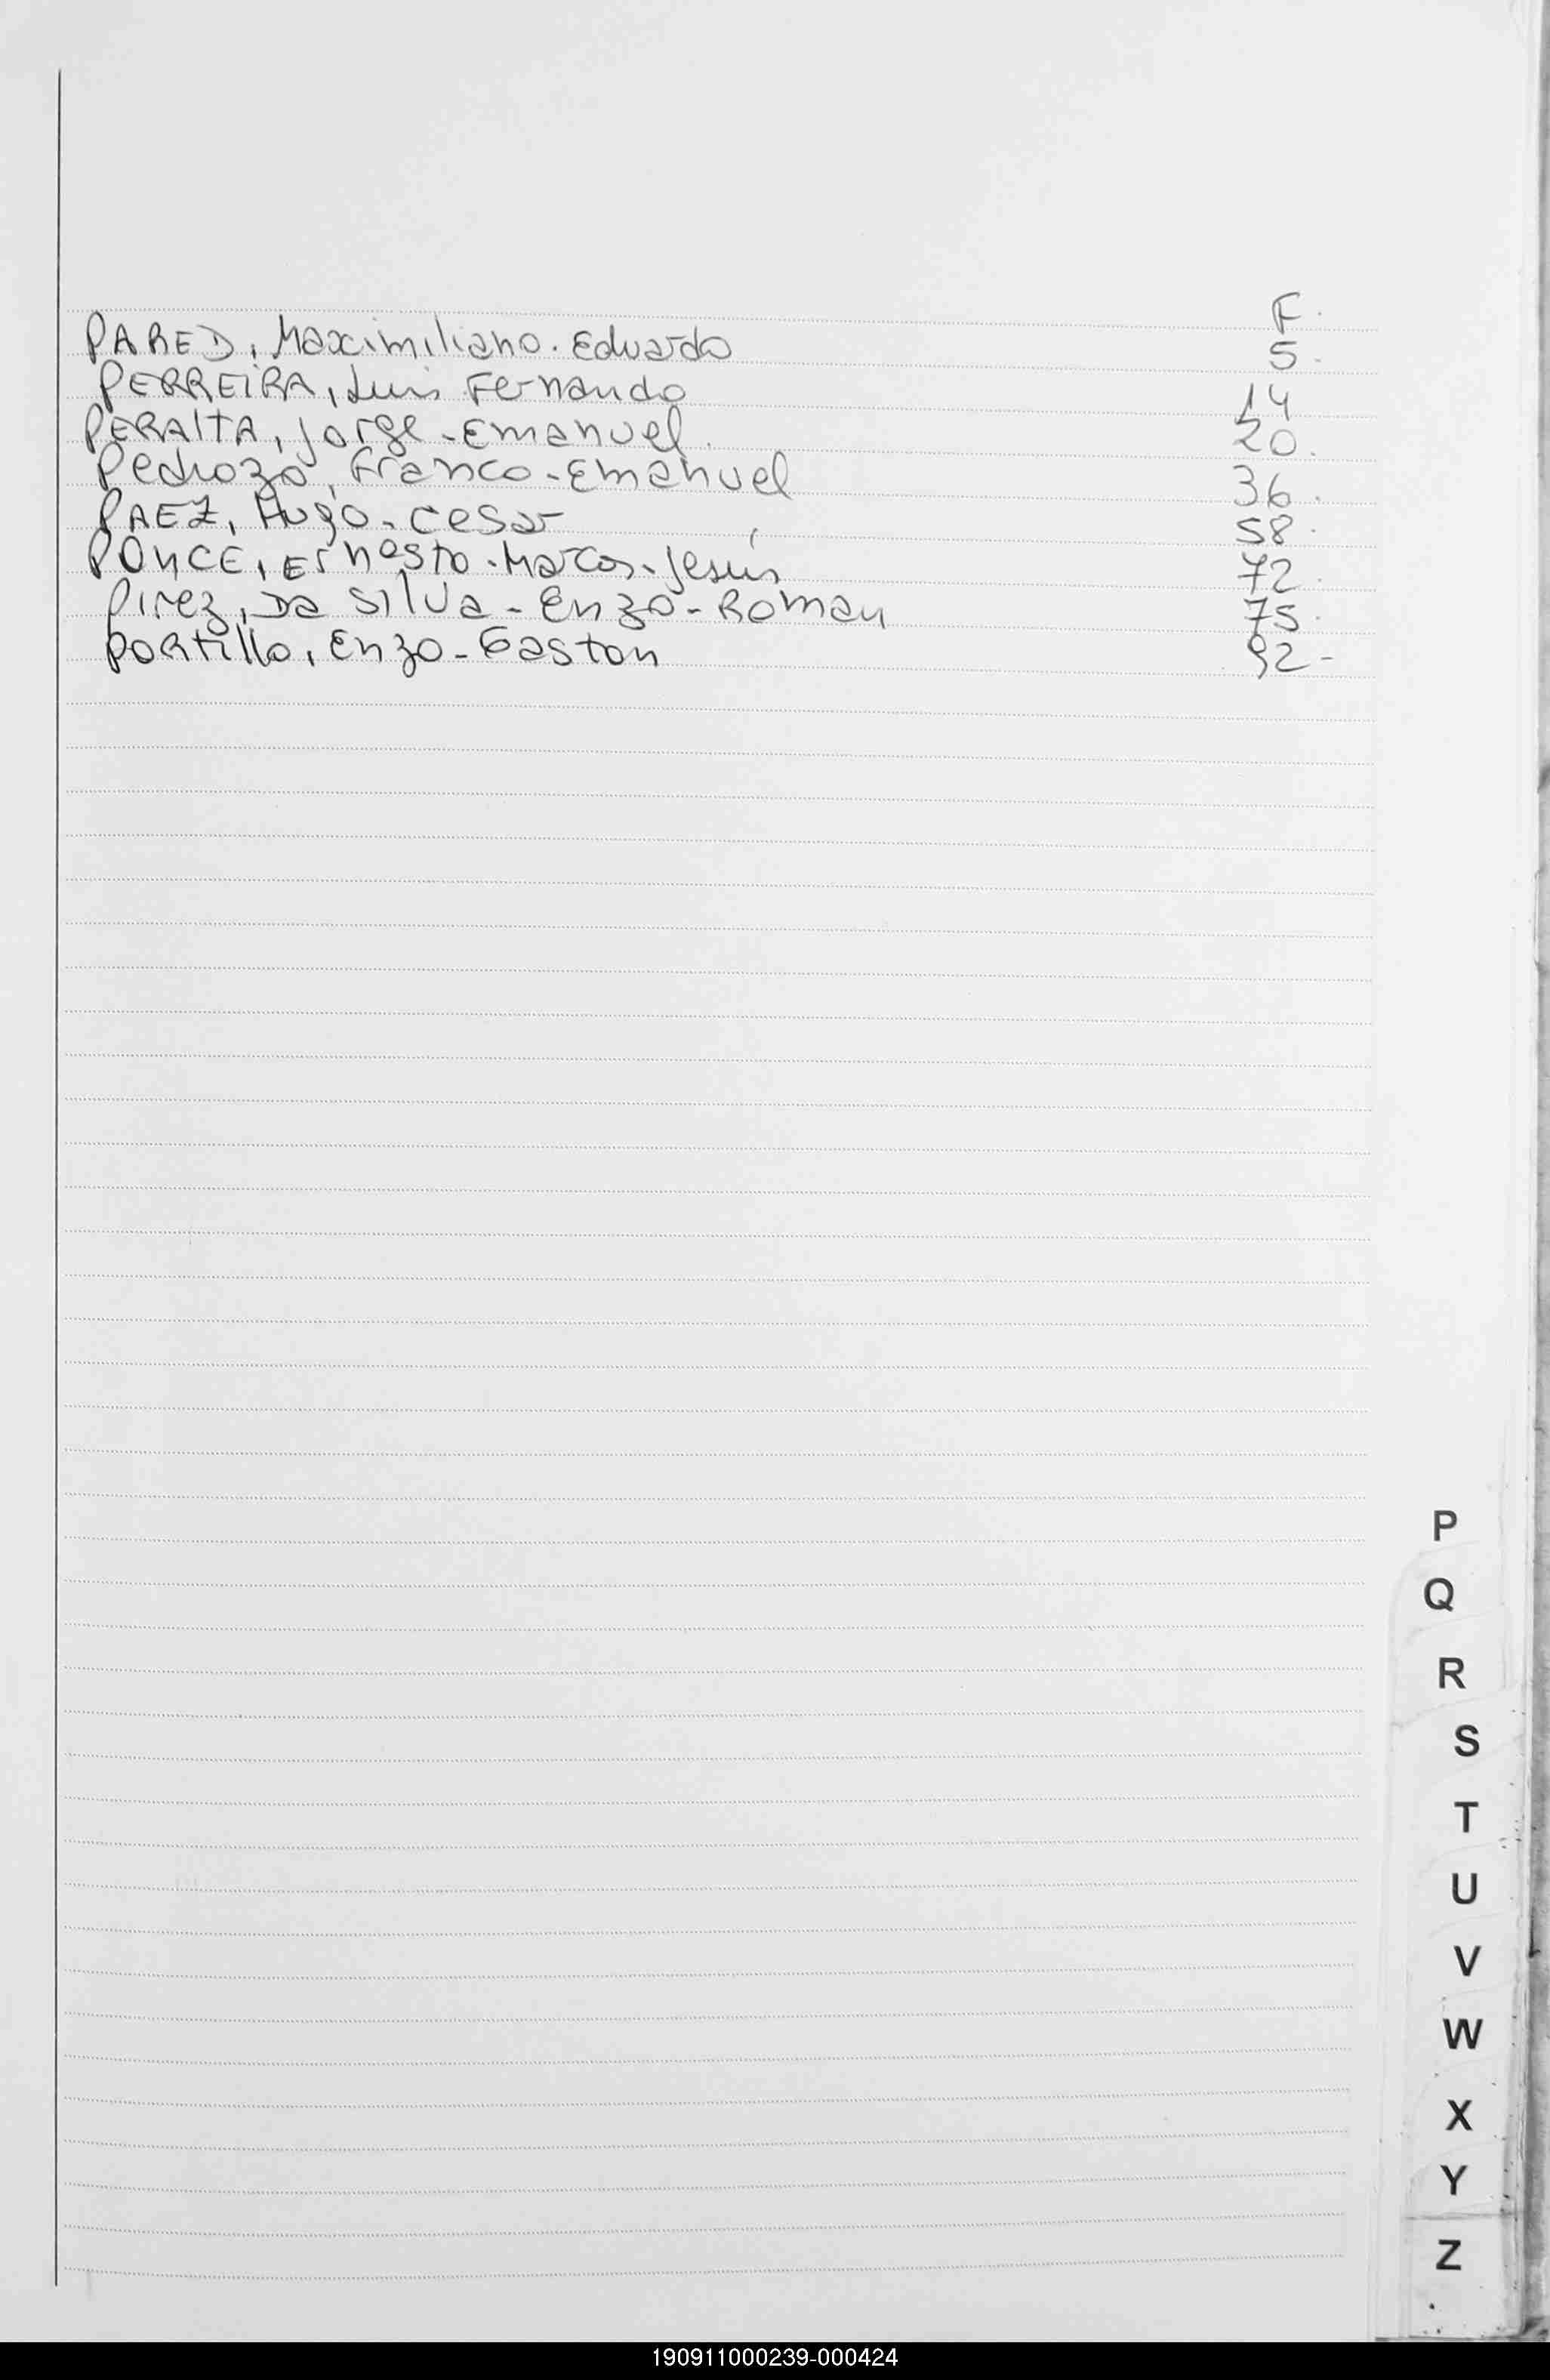 F.
PARED, Maximiliano. Eduardo 5.
PERREIRA, Luis Fernando 14
PERAlTA, Jorge - Emanuel. 20.
Pedrozo, Franco - Emanuel 36.
PAEZ, Hugo - Cesar 58.
PONCE, Ernesto - Marcos - Jesús 72.
Pirez, Da Silva - Enzo - Roman 75.
PORtillo, Enzo - Gaston 92-
P
Q
R
S
T
U
V
W
X
Y
Z
190911000239-000424